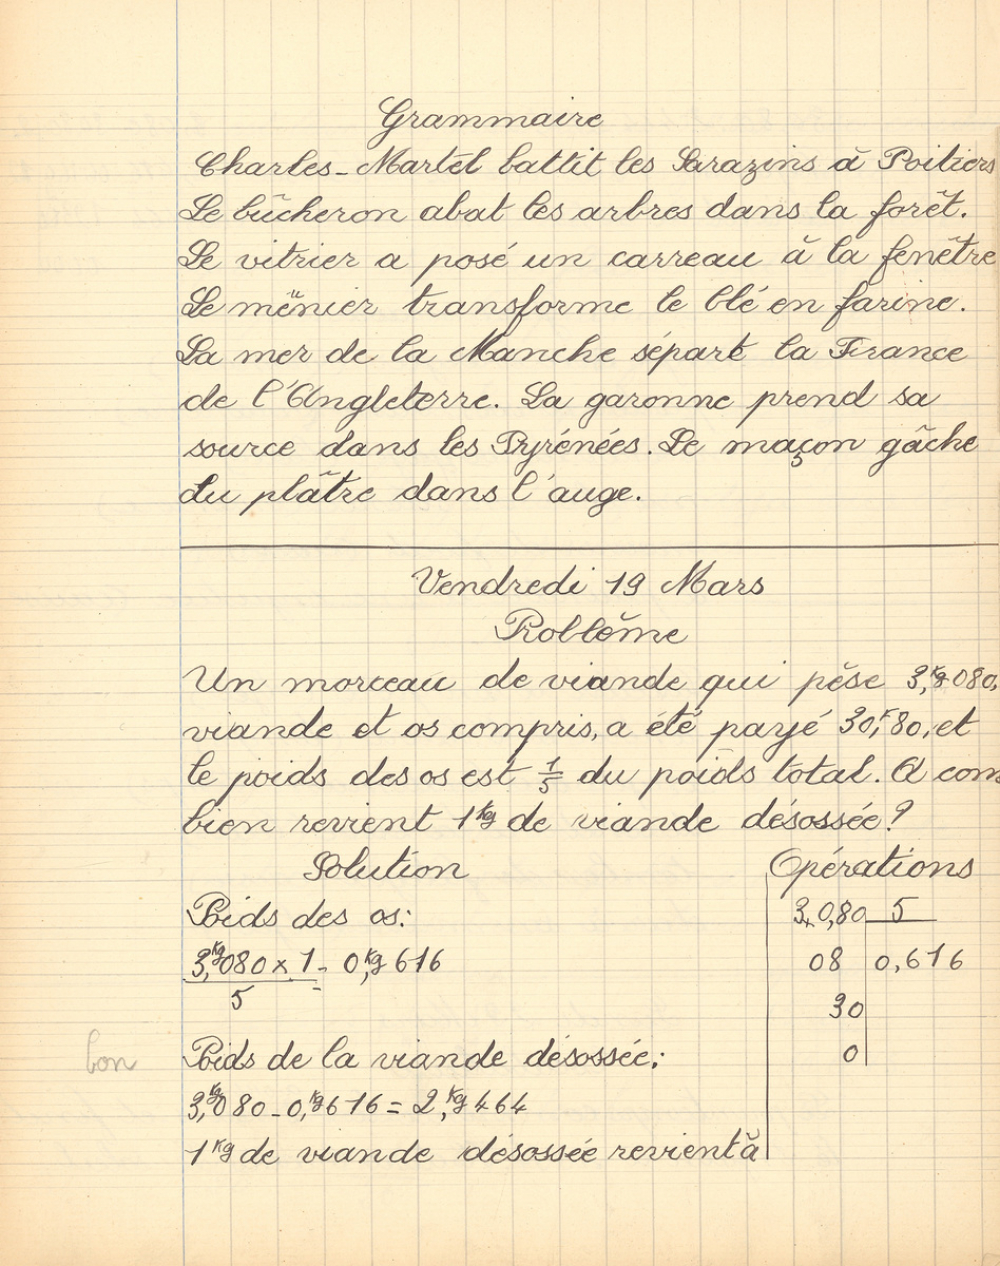 Grammaire
Charles-Martel battit les Sarazins à Poitiers
Le bûcheron abat les arbres dans la forêt.
Le vitrier a posé un carreau à la fenêtre
Le mënier transforme le blé en farine.
La mer de la Manche séparé la France
de l'Angleterre. La garonne prend sa
source dans les Pyrénées. Le maçon gâche
du plâtre dans l'auge.
Vendredi 19 Mars
Problème
Un morceau de viande qui pèse 3,Kg080,
viande et os compris, a été payé 30,F80, et
le poids des os est 1/5 du poids total. A com
bien revient 1Kg de viande désossée?
Solution
Opérations
Poids des os:
3,Kg080 x 1 = 0,Kg616
5
3,0,80 5
08 0,616
30
0
bon
Poids de la viande désossée:
3,Kg080 - 0,Kg616 = 2,Kg464
1Kg de viande désossée revient à